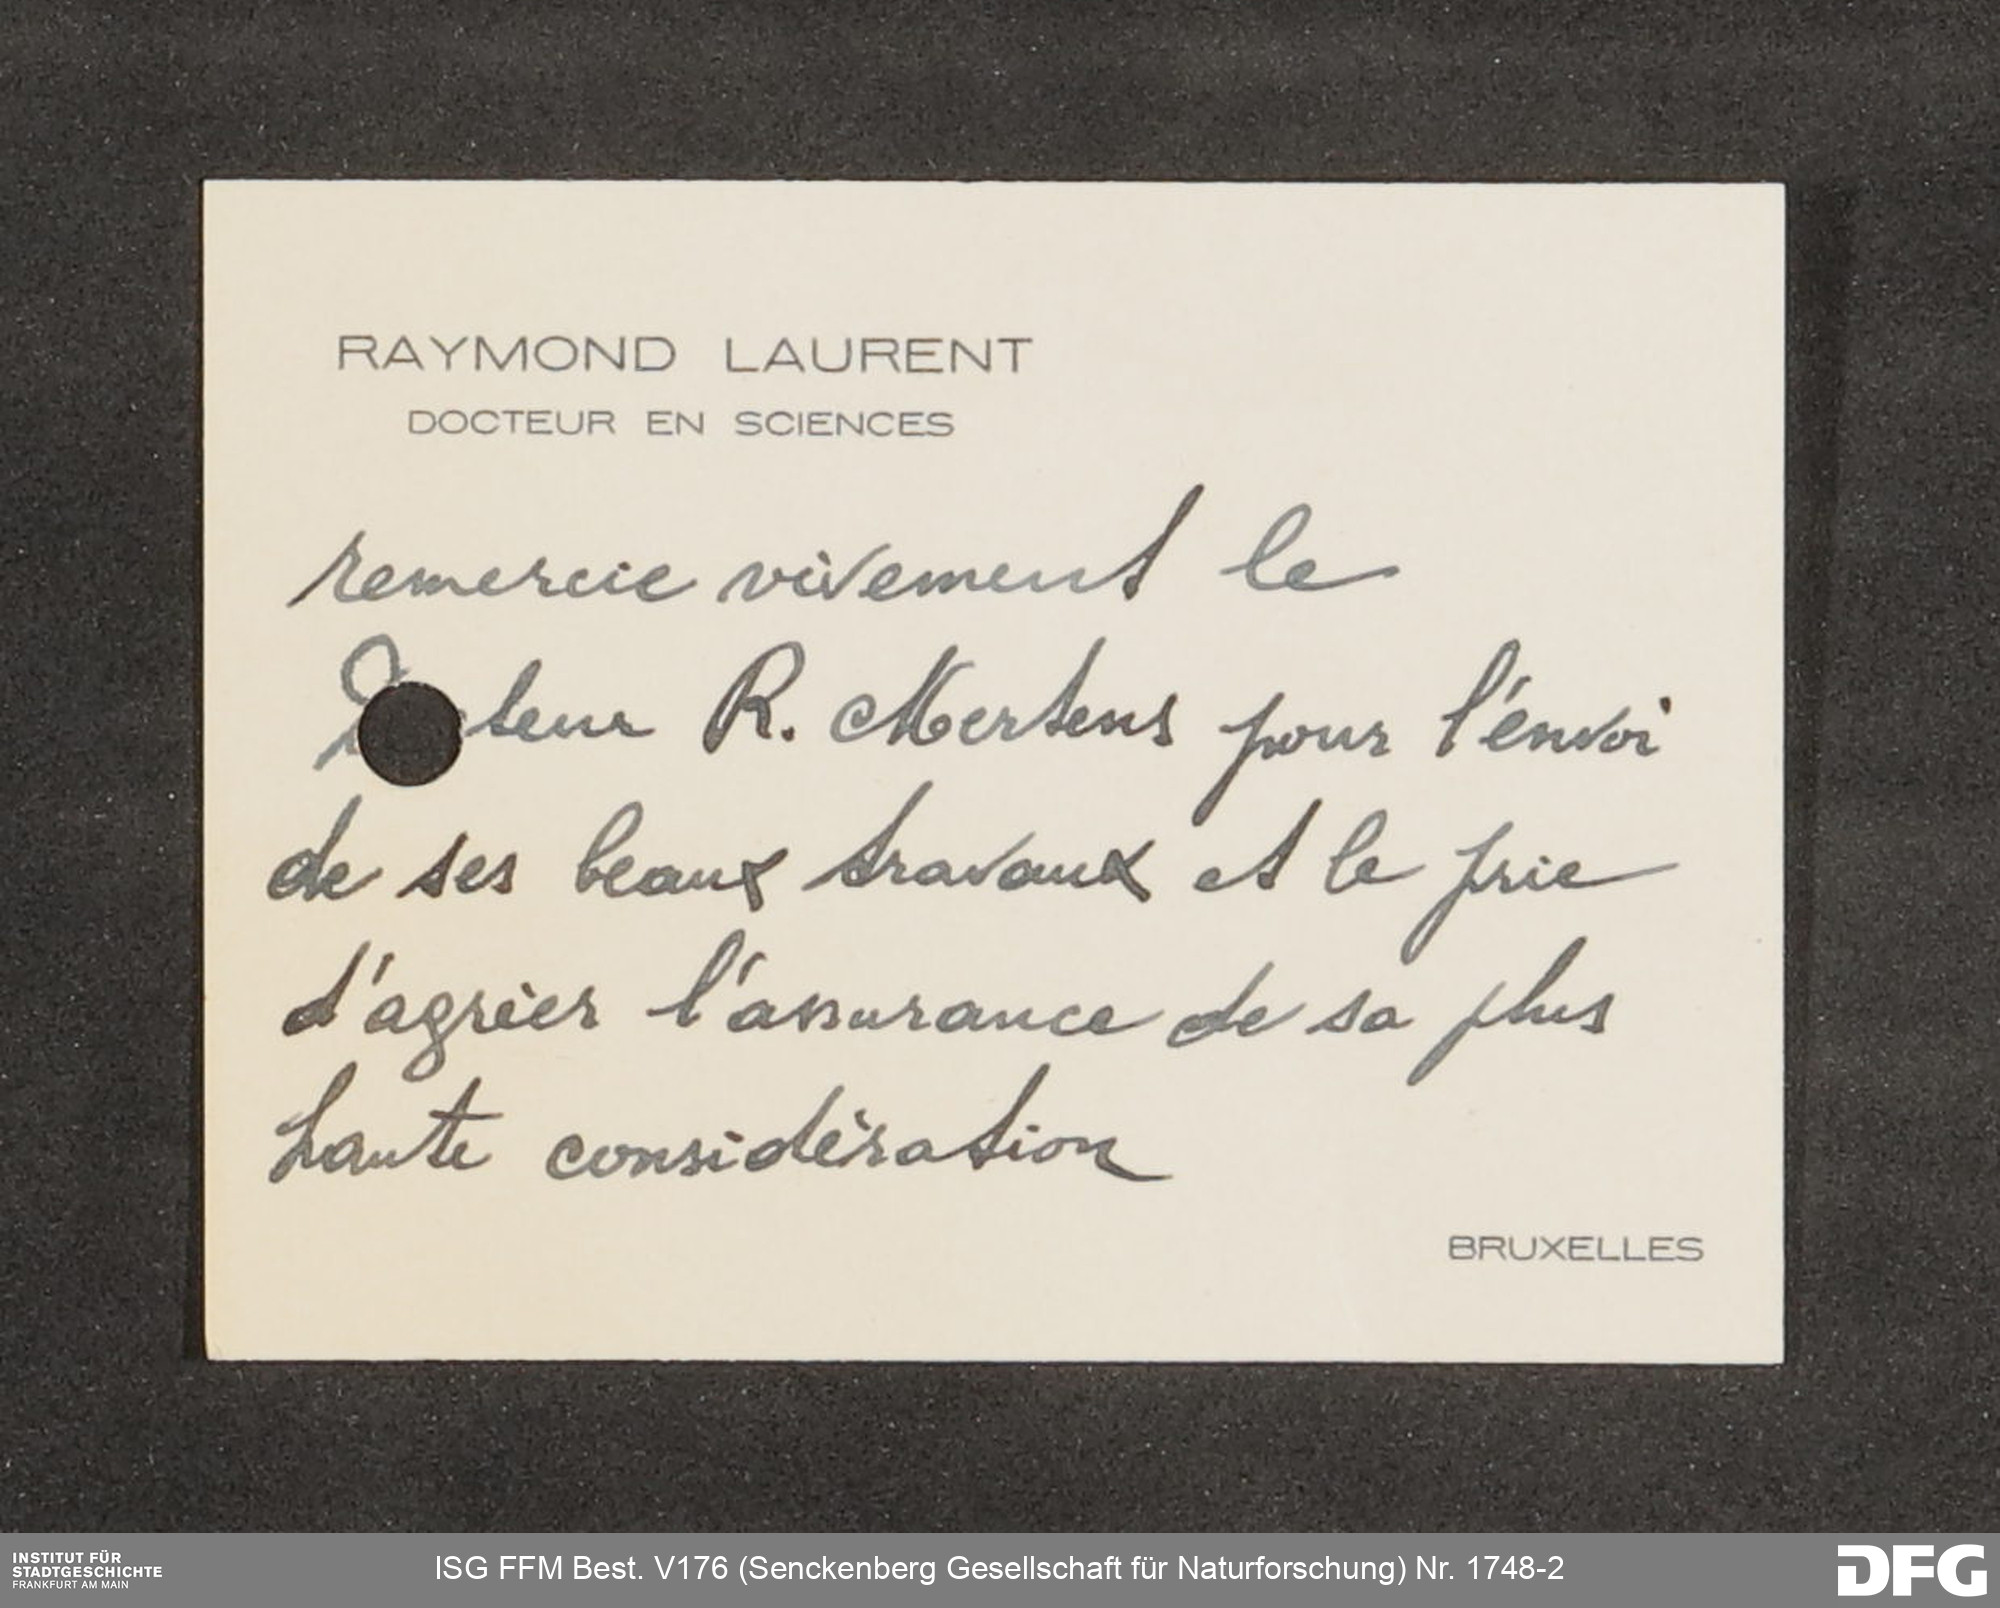 RAYMOND LAURENT
DOCTEUR EN SCIENCES
remercie vivement le
teur R. Mertens pour l'envoi
de ses beaux travaux et le prie
d'agréer l'assurance de sa plus
haute considération
BRUXELLES
INSTITUT FÜR
STADTGESCHICHTE
FRANKFURT AM MAIN
ISG FFM Best. V176 (Senckenberg Gesellschaft für Naturforschung) Nr. 1748-2
DFG